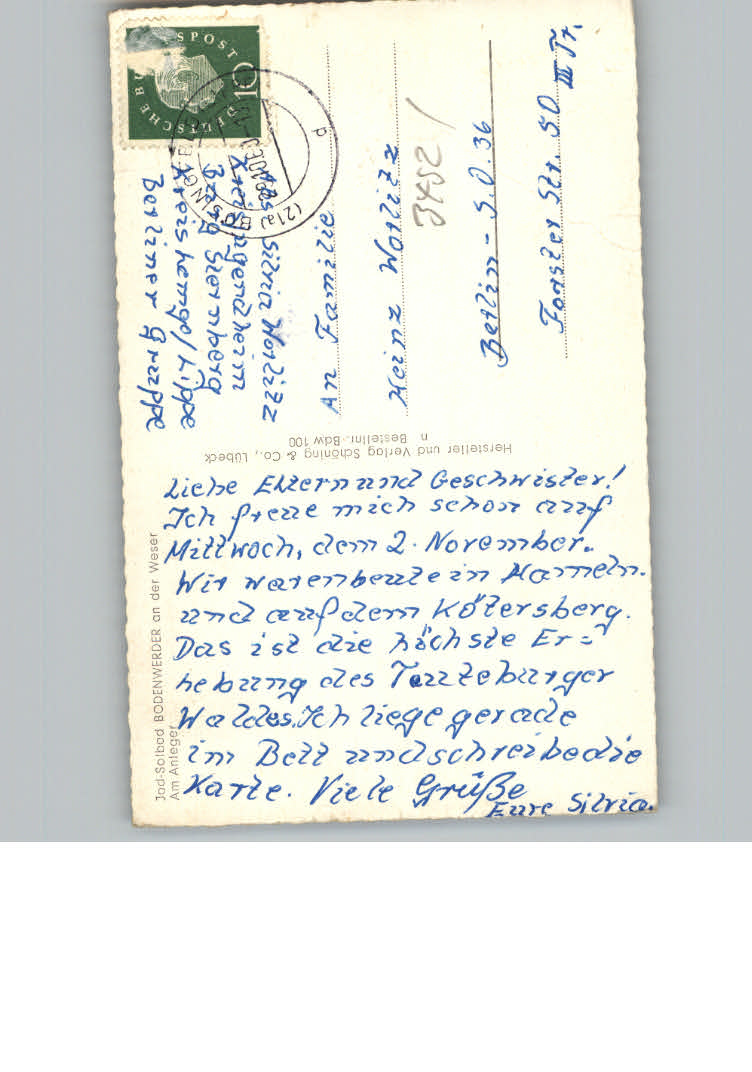 Jod-Solbad BODENWERDER an der Weser
Am Anleger
Liebe Eltern und Geschwister!
Ich freue mich schon auf
Mittwoch, dem 2. November.
Wir waren heute in Hameln.
und auf dem Kötersberg.
Das ist die höchste Er=
hebung des Teuteburger
Waldes. Ich liege gerade
im Bett und schreibe die
Karte. Viele Grüße
Eure Silvia.
Hersteller und Verlag Schöning & Co., Lübeck
n Bestellnr.: Bdw 100
Abs. Silvia Worlitz
Kreisjugendheim
Burg Sternberg
Kreis Lemgo/Lippe
Berliner Gruppe
DEUTSCHE BUNDESPOST
10
(21a)
b
An Familie
Heinz Worlitz
3452/
Berlin - S.O. 36
Forster Str. 50 III Tr.